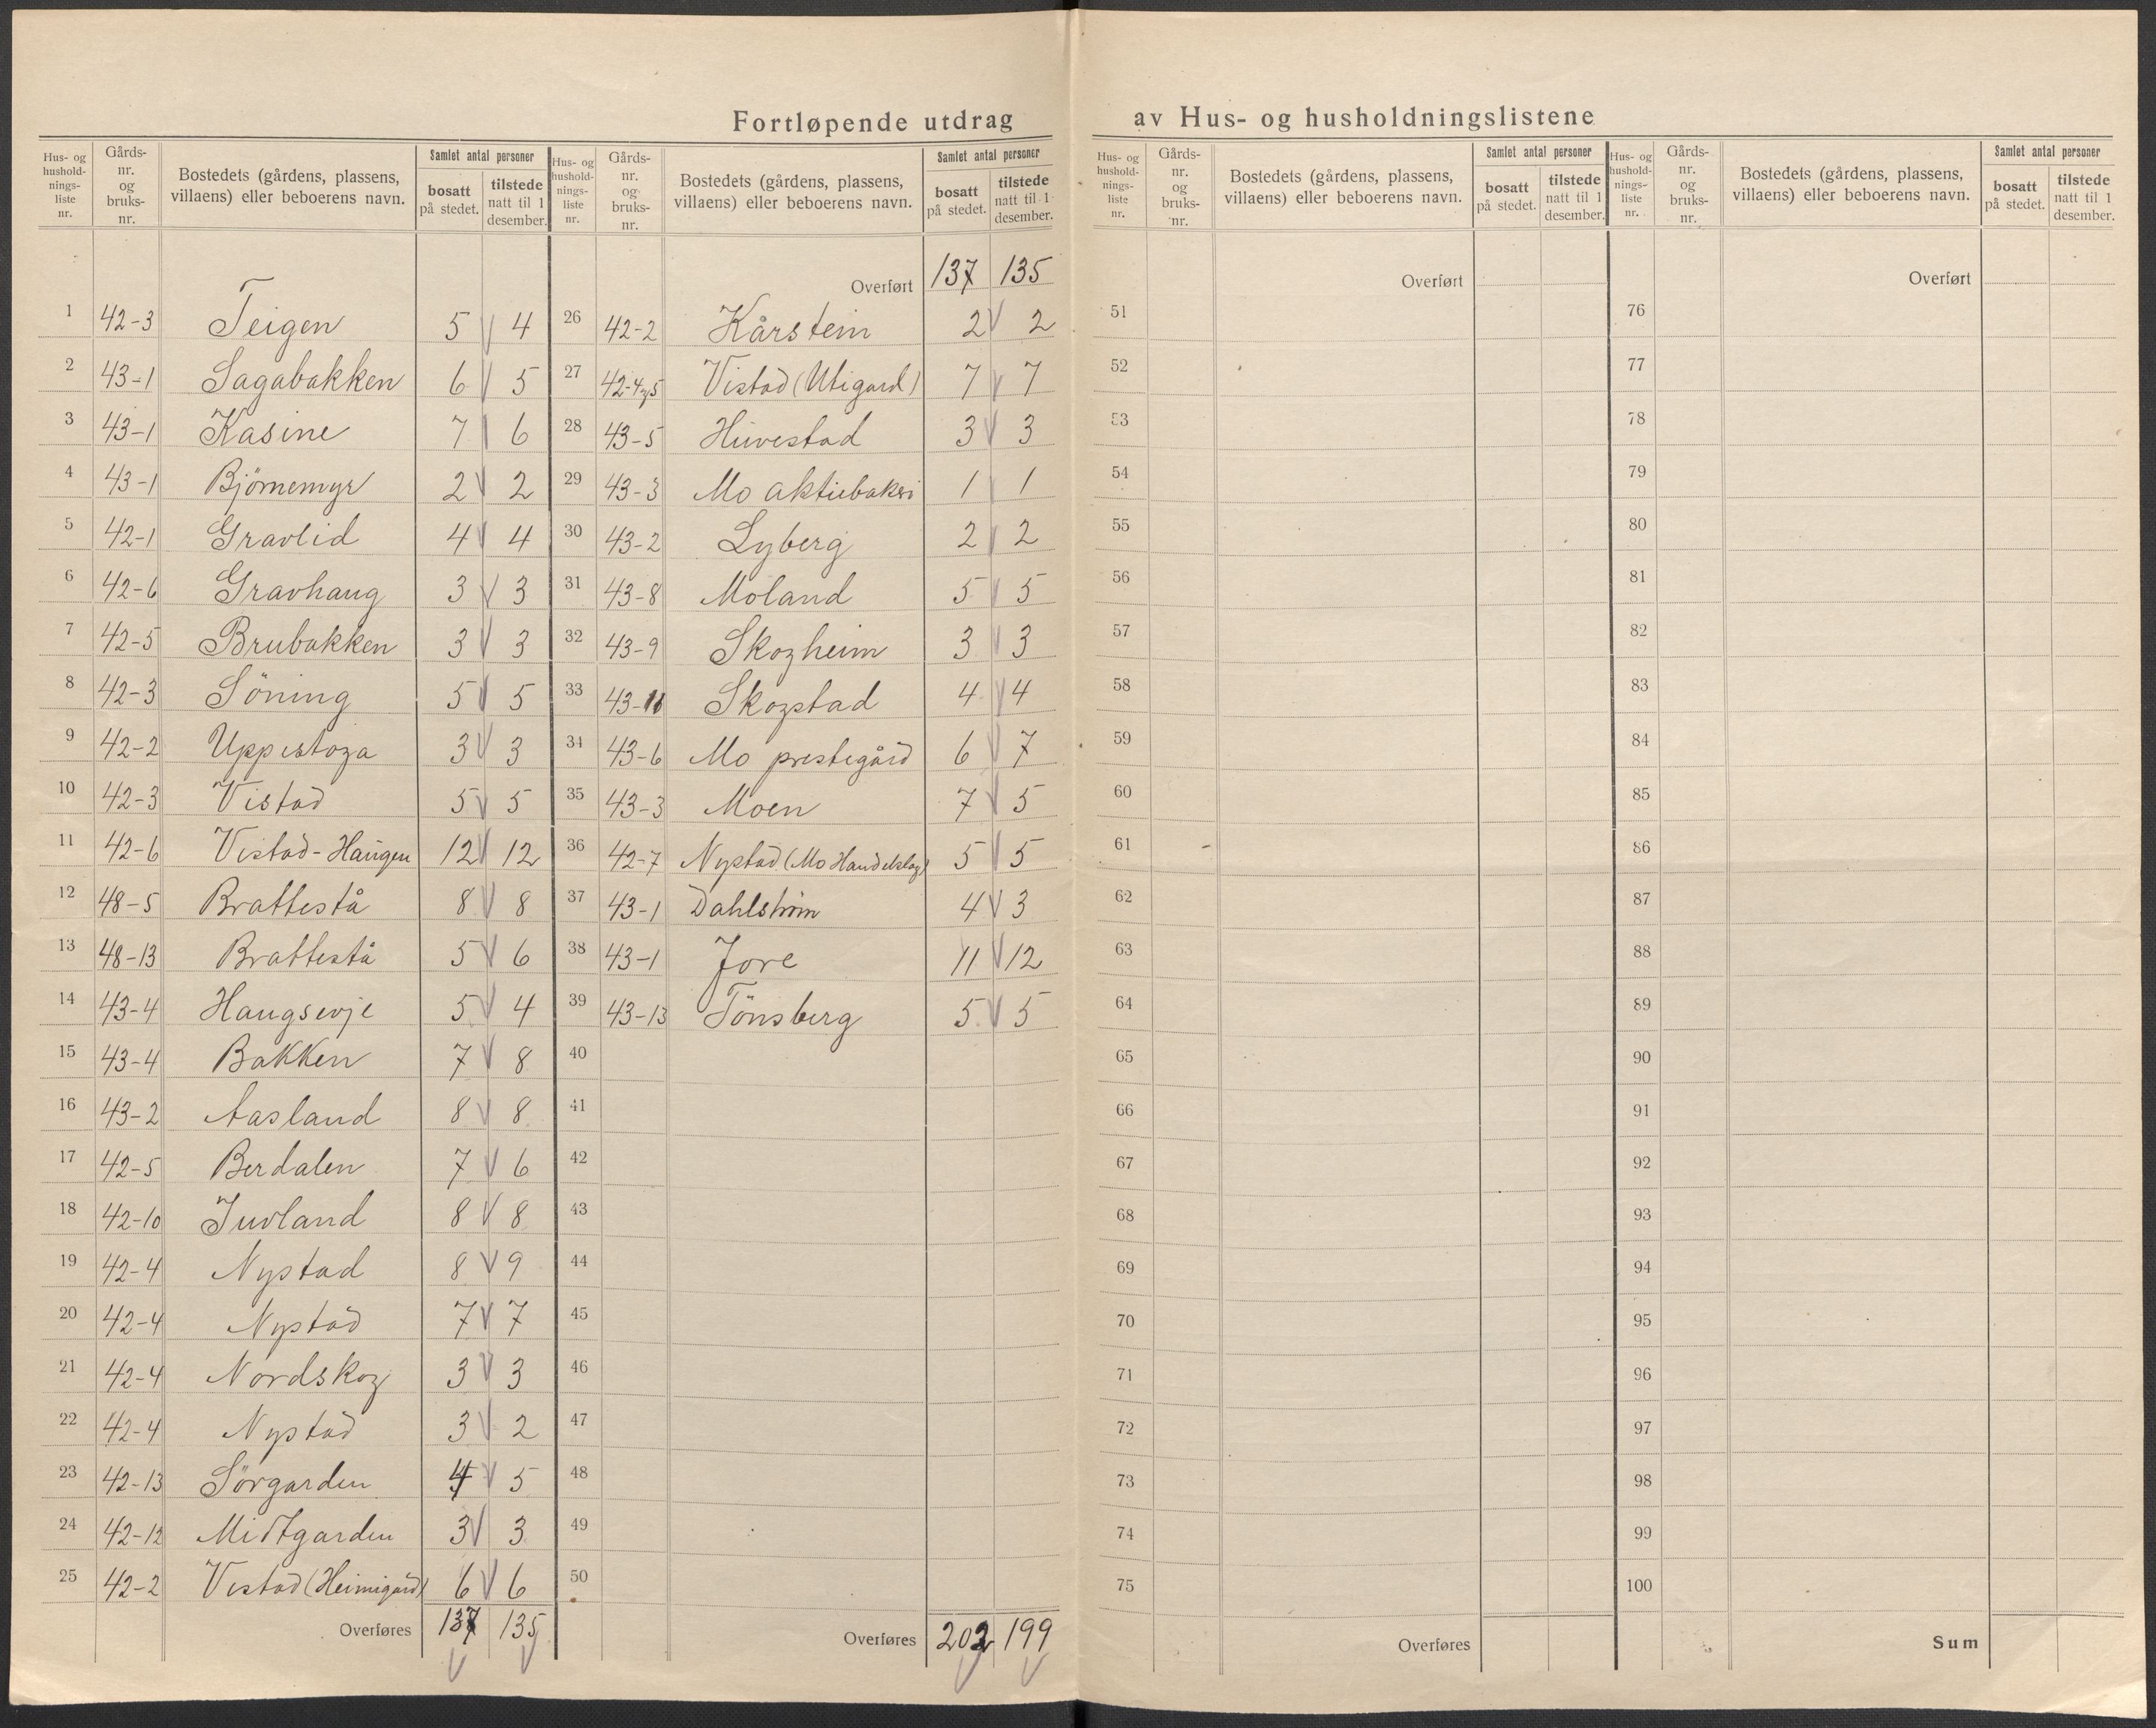 Fortløpende utdrag av Hus- og husholdningslistene
Hus- og hushold-nings-liste nr. | Gårds-nr. og bruks-nr. | Bostedets (gårdens, plassens, villaens) eller beboerens navn. | Samlet antal personer | bosatt på stedet. | tilstede natt til 1 desember.
1 42-3 Teigen 5 4
2 43-1 Sagabakken 6 5
3 43-1 Kasine 7 6
4 43-1 Björnemyr 2 2
5 42-1 Gravlid 4 4
6 42-6 Gravhaug 3 3
7 42-5 Brubakken 3 3
8 42-3 Söning 5 5
9 42-2 Uppistoga 3 3
10 42-3 Vistad 5 5
11 42-6 Vistad-Haugen 12 12
12 48-5 Brattestå 8 8
13 48-13 Brattestå 5 6
14 43-4 Haugsevje 5 4
15 43-4 Bakken 7 8
16 43-2 Aasland 8 8
17 42-5 Berdalen 7 6
18 42-10 Juvland 8 8
19 42-4 Nystad 8 9
20 42-4 Nystad 7 7
21 42-4 Nordskog 3 3
22 42-4 Nystad 3 2
23 42-13 Sörgarden 4 5
24 42-12 Midtgarden 3 3
25 42-2 Vistad (Heimigard) 6 6
Overføres 137 135
Hus- og hushold-nings-liste nr. | Gårds-nr. og bruks-nr. | Bostedets (gårdens, plassens, villaens) eller beboerens navn. | Samlet antal personer | bosatt på stedet. | tilstede natt til 1 desember.
Overført 137 135
26 42-2 Kårstein 2 2
27 42-4 og 5 Vistad (Utigard) 7 7
28 43-5 Huvestad 3 3
29 43-3 Mo aktiebakeri 1 1
30 43-2 Lyberg 2 2
31 43-8 Moland 5 5
32 43-9 Skogheim 3 3
33 43-11 Skogstad 4 4
34 43-6 Mo prestegård 6 7
35 43-3 Moen 7 5
36 42-7 Nystad (Mo Handelslag) 5 5
37 43-1 Dahlström 4 3
38 43-1 Jore 11 12
39 43-13 Tönsberg 5 5
40
41
42
43
44
45
46
47
48
49
50
Overføres 202 199
Hus- og hushold-nings-liste nr. | Gårds-nr. og bruks-nr. | Bostedets (gårdens, plassens, villaens) eller beboerens navn. | Samlet antal personer | bosatt på stedet. | tilstede natt til 1 desember.
Overført
51
52
53
54
55
56
57
58
59
60
61
62
63
64
65
66
67
68
69
70
71
72
73
74
75
Overføres
Hus- og hushold-nings-liste nr. | Gårds-nr. og bruks-nr. | Bostedets (gårdens, plassens, villaens) eller beboerens navn. | Samlet antal personer | bosatt på stedet. | tilstede natt til 1 desember.
Overført
76
77
78
79
80
81
82
83
84
85
86
87
88
89
90
91
92
93
94
95
96
97
98
99
100
Sum